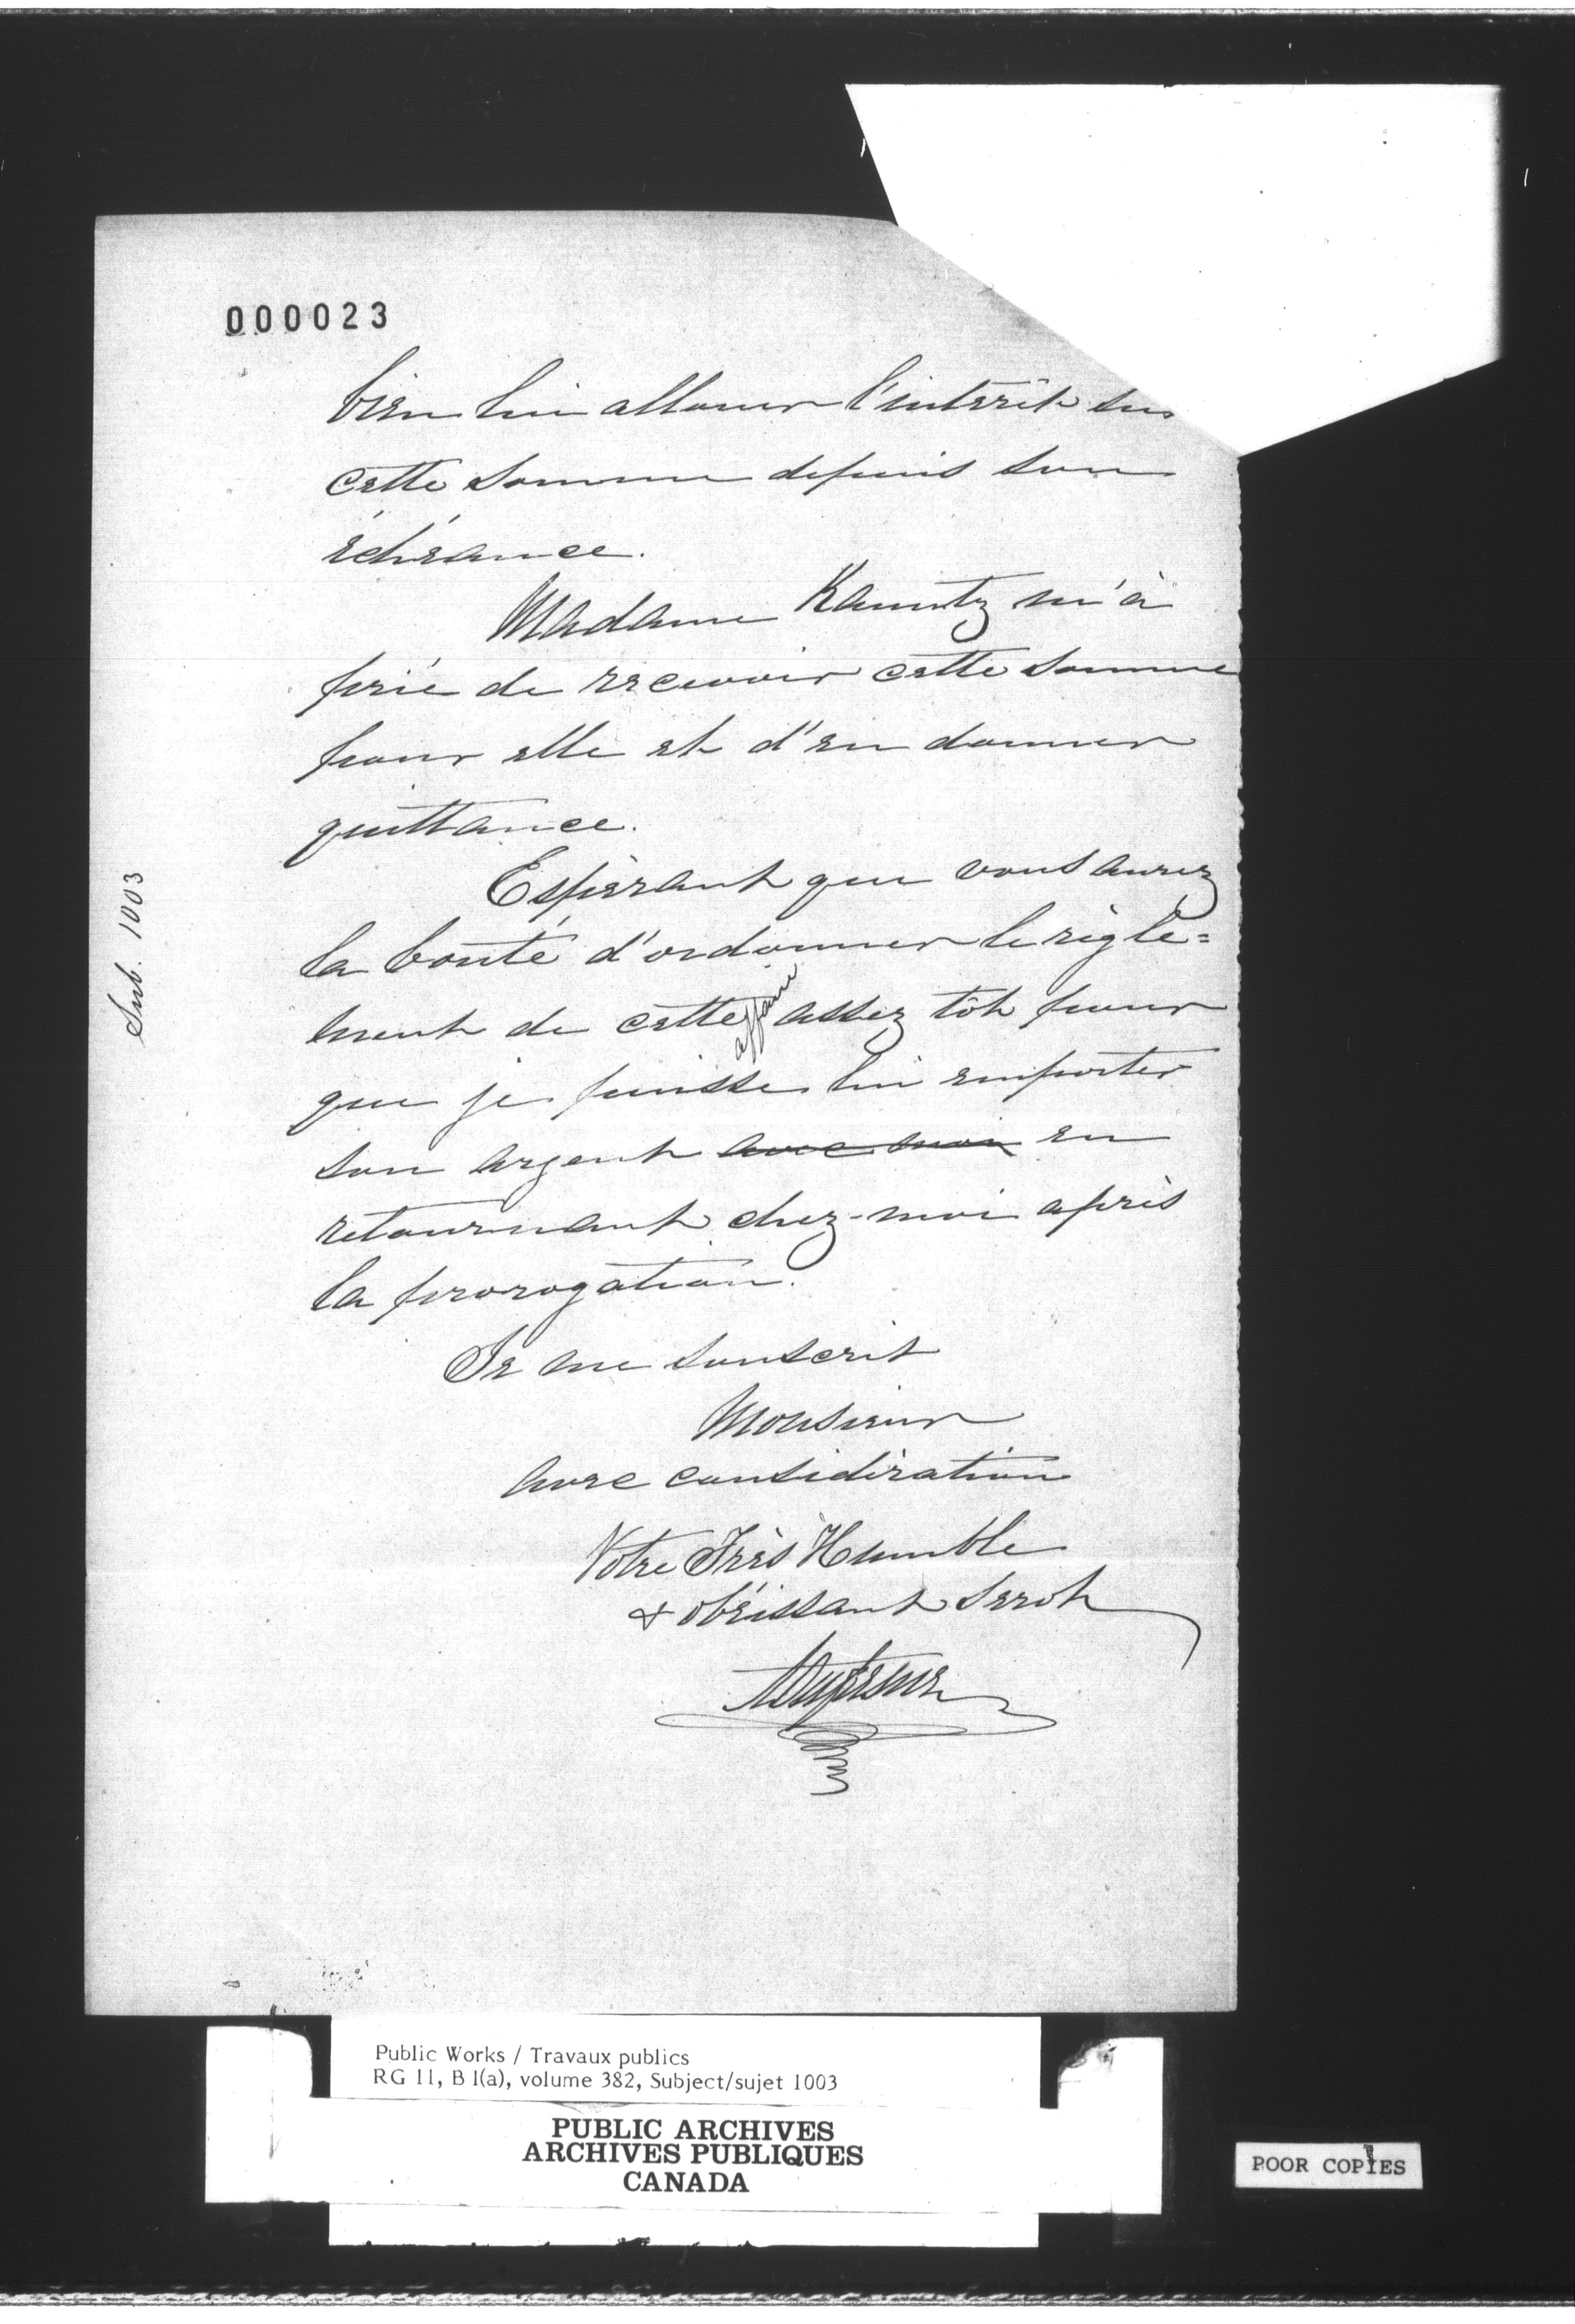 000023
bien lui allouer l'intérêt sur
cette somme depuis son
échéance.
Madame Kauntz m'à
prié de recevoir cette somme
pour elle et d'en donner
quittance.
Espérant que vous aurez
la bonté d'ordonner le règle=
ment de cette affaire assez tôt pour
que je puisse lui emporter
son argent avec moi en
retournant chez-moi après
la prorogation.
Je me souscrit
Monsieur
avec considération
Votre Très Humble
& obéissant Servt
Sub. 1003
Public Works / Travaux publics
RG 11, B 1(a), volume 382, Subject/sujet 1003
PUBLIC ARCHIVES
ARCHIVES PUBLIQUES
CANADA
POOR COPIES